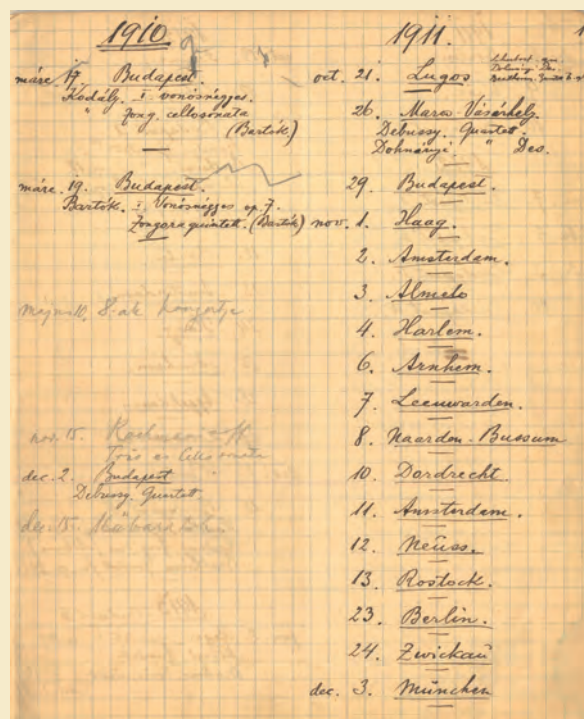 1910
márc. 17. Budapest.
Kodály. I. vonósnégyes.
" Zong. cellosonata
(Bartók.)
márc. 19. Budapest.
Bartók. I. Vonósnégyes op. 7.
Zongoraquintett. (Bartók)
május 10. 8-ak
nov. 15.
Trio és Cello sonata
dec. 2. Budapest
Debussy. Quartett.
dec. 15.
1911.
oct. 21. Lugos
26. Maros-Vásárhely.
Debussy. Quartett.
Dohnányi. " Des.
29. Budapest.
nov. 1. Haag.
2. Amsterdam.
3. Almelo
4. Harlem.
6. Arnhem.
7. Leeuwarden.
8. Naarden-Bussum
10. Dordrecht.
11. Amsterdam.
12. Neuss.
13. Rostock.
23. Berlin.
24. Zwickau
dec. 3. München